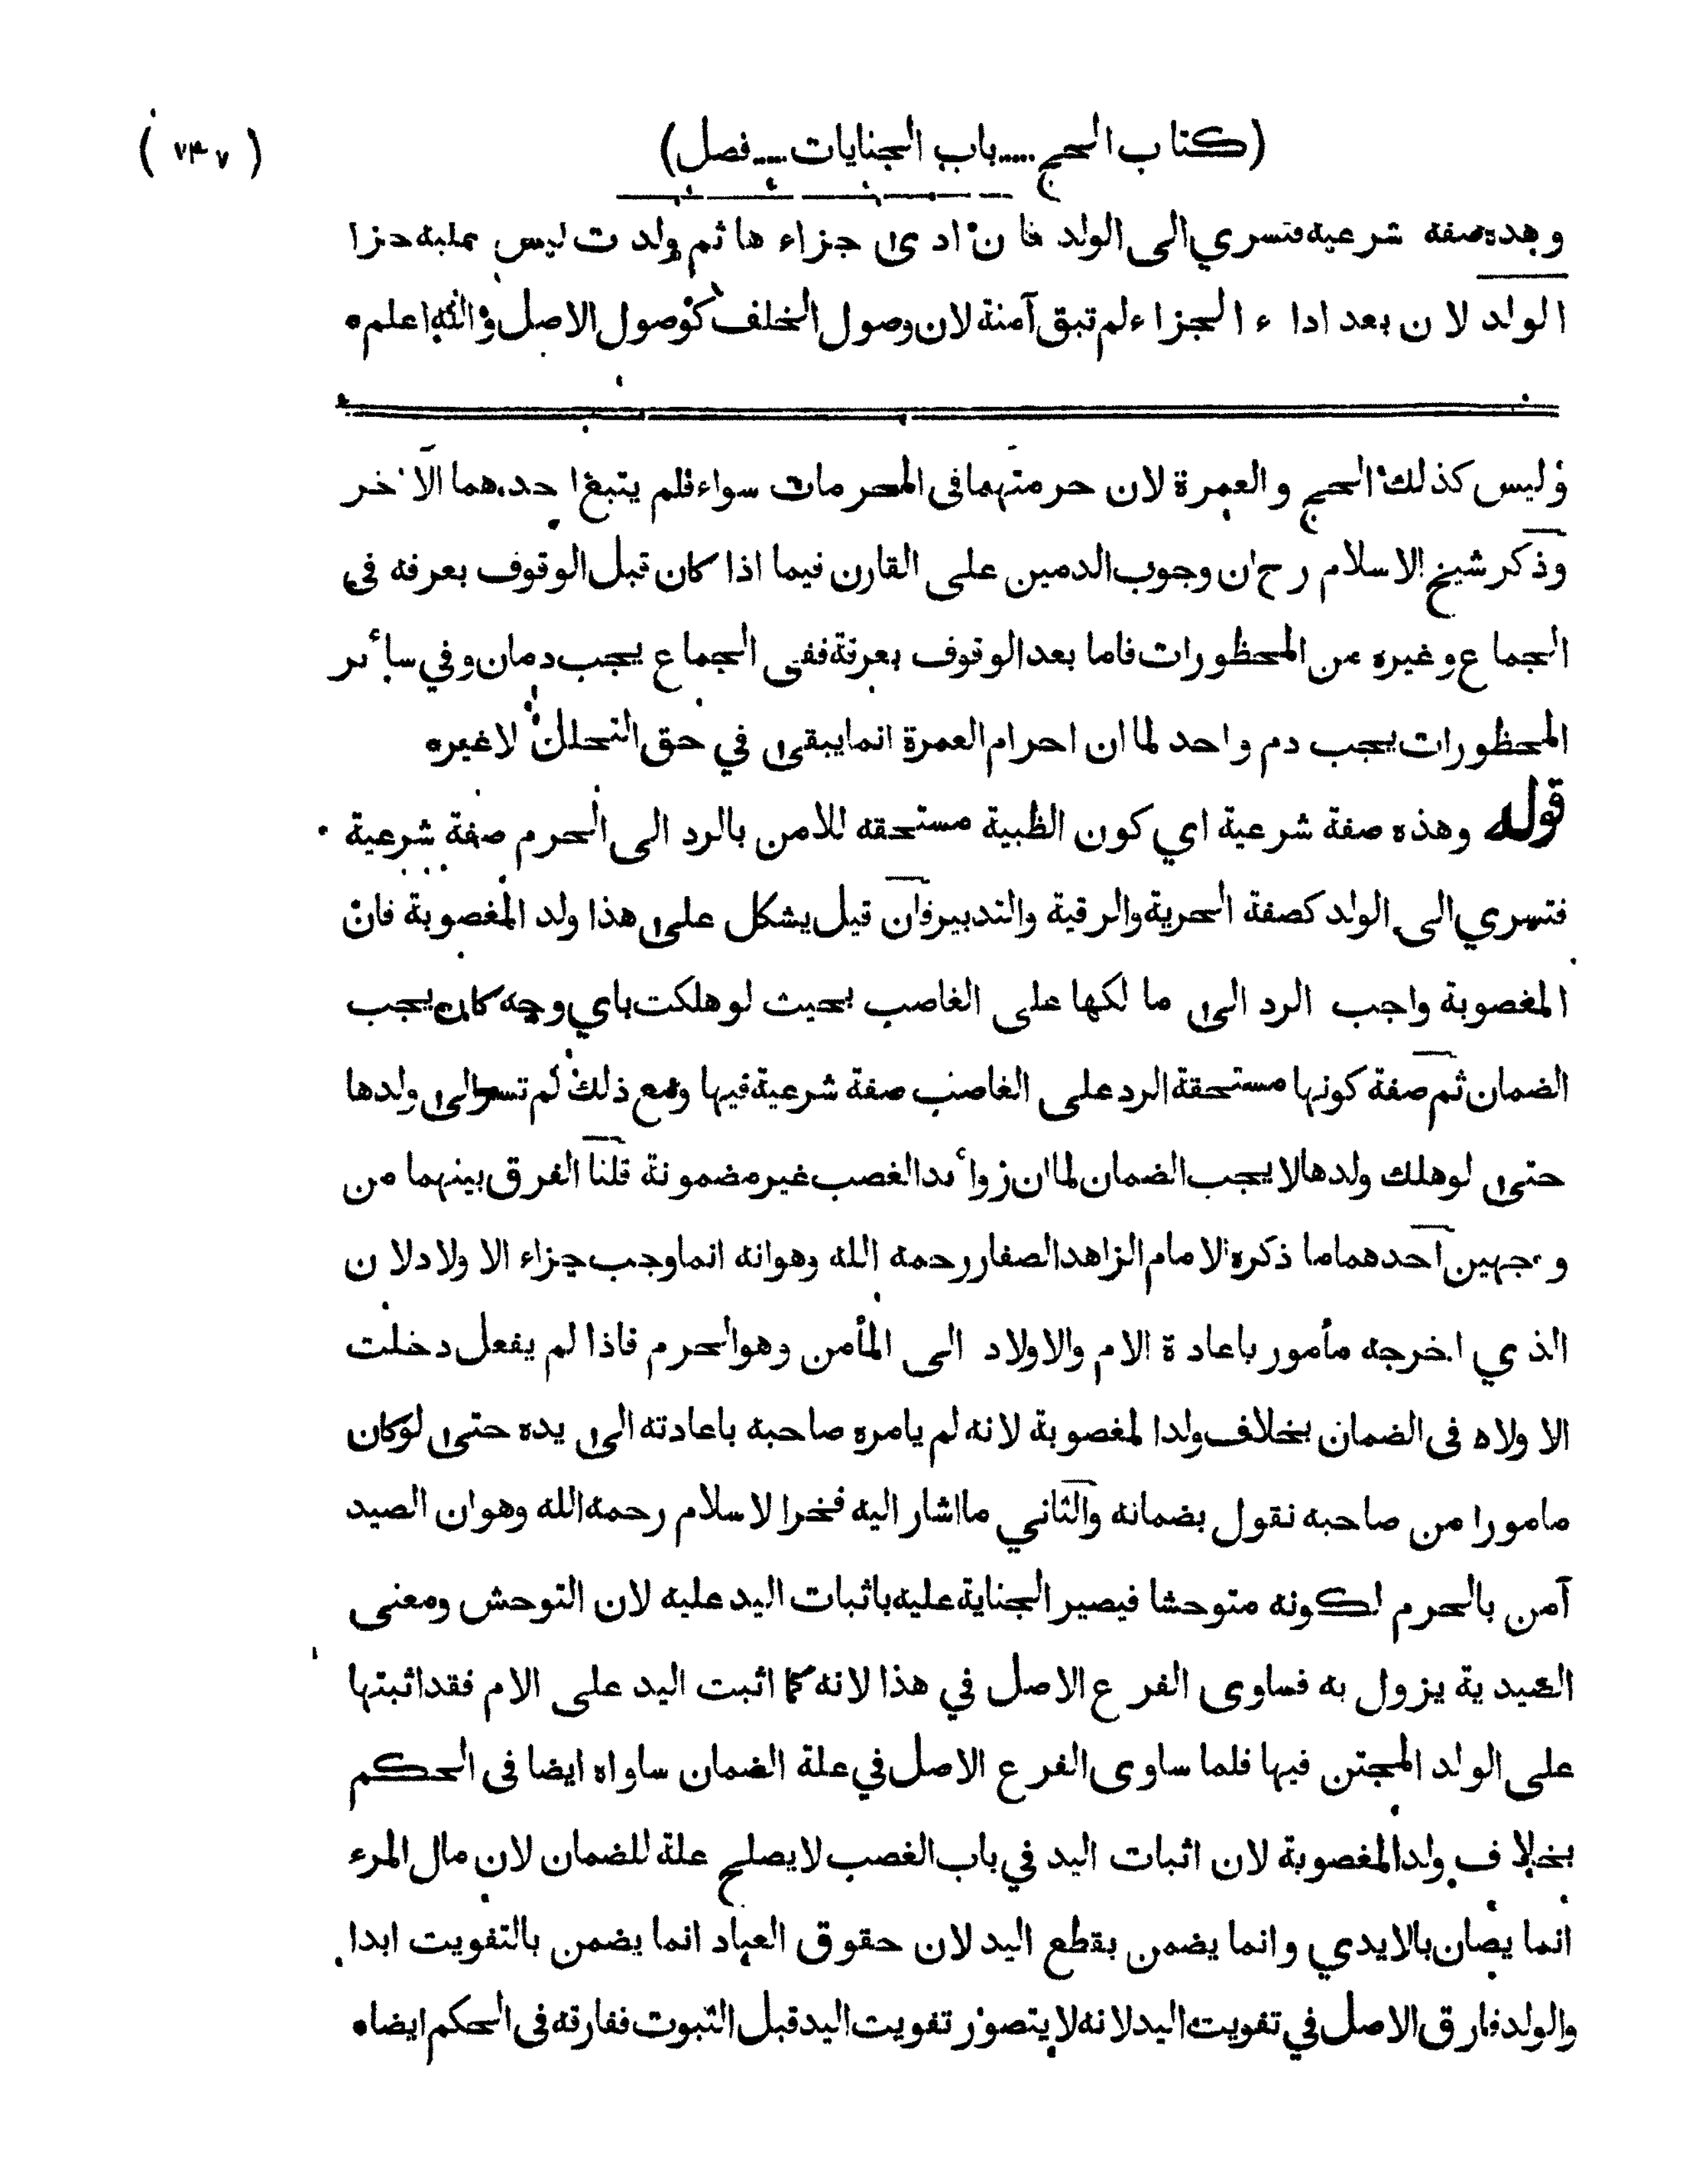 (كتاب الحج.....باب الجنايات.....فصل) (٧٤٧)
وهذه صفة شرعية فتسري الى الولد فان ادى جزاء ها ثم ولدت ليس عليه جزا
الولد لان بعد اداء الجزاء لم تبق آمنة لان وصول الخلف كوصول الاصل والله اعلم ٥
وليس كذلك الحج والعمرة لان حرمتهما فى المحرمات سواء فلم يتبع احدهما الآخر
وذكر شيخ الاسلام رح ان وجوب الدمين على القارن فيما اذا كان قبل الوقوف بعرفه فى
الجماع وغيره من المحظورات فاما بعد الوقوف بعرفة ففى الجماع يجب دمان وفي سائر
المحظورات يجب دم واحد لما ان احرام العمرة انما يبقى في حق التحلل لا غير ٥
قوله وهذه صفة شرعية اي كون الظبية مستحقه للامن بالرد الى الحرم صفة شرعية
فتسري الى الولد كصفة الحرية والرقية والتدبير فان قيل يشكل على هذا ولد المغصوبة فان
المغصوبة واجب الرد الى ما لكها على الغاصب بحيث لو هلكت باي وجه كان يجب
الضمان ثم صفة كونها مستحقة الرد على الغاصب صفة شرعية فيها ومع ذلك لم تسر الى ولدها
حتى لو هلك ولدها لا يجب الضمان لما ان زوائد الغصب غير مضمونة قلنا الفرق بينهما من
وجهين احدهما ما ذكره الامام الزاهد الصفار رحمه الله وهو انه انما وجب جزاء الاولاد لان
الذي اخرجه مأمور باعادة الام والاولاد الى المأمن وهو الحرم فاذا لم يفعل دخلت
الاولاد فى الضمان بخلاف ولد المغصوبة لانه لم يامره صاحبه باعادته الى يده حتى لو كان
مامورا من صاحبه نقول بضمانه والثاني ما اشار اليه فخر الاسلام رحمه الله وهو ان الصيد
آمن بالحرم لكونه متوحشا فيصير الجناية عليه باثبات اليد عليه لان التوحش ومعنى
الصيدية يزول به فساوى الفرع الاصل في هذا لانه كما اثبت اليد على الام فقد اثبتها
على الولد المجتن فيها فلما ساوى الفرع الاصل في علة الضمان ساواه ايضا فى الحكم
بخلاف ولد المغصوبة لان اثبات اليد في باب الغصب لا يصلح علة للضمان لان مال المرء
انما يصان بالايدي وانما يضمن بقطع اليد لان حقوق العباد انما يضمن بالتفويت ابدا
والولد فارق الاصل في تفويت اليد لانه لا يتصور تفويت اليد قبل الثبوت ففارقه فى الحكم ايضا ٥